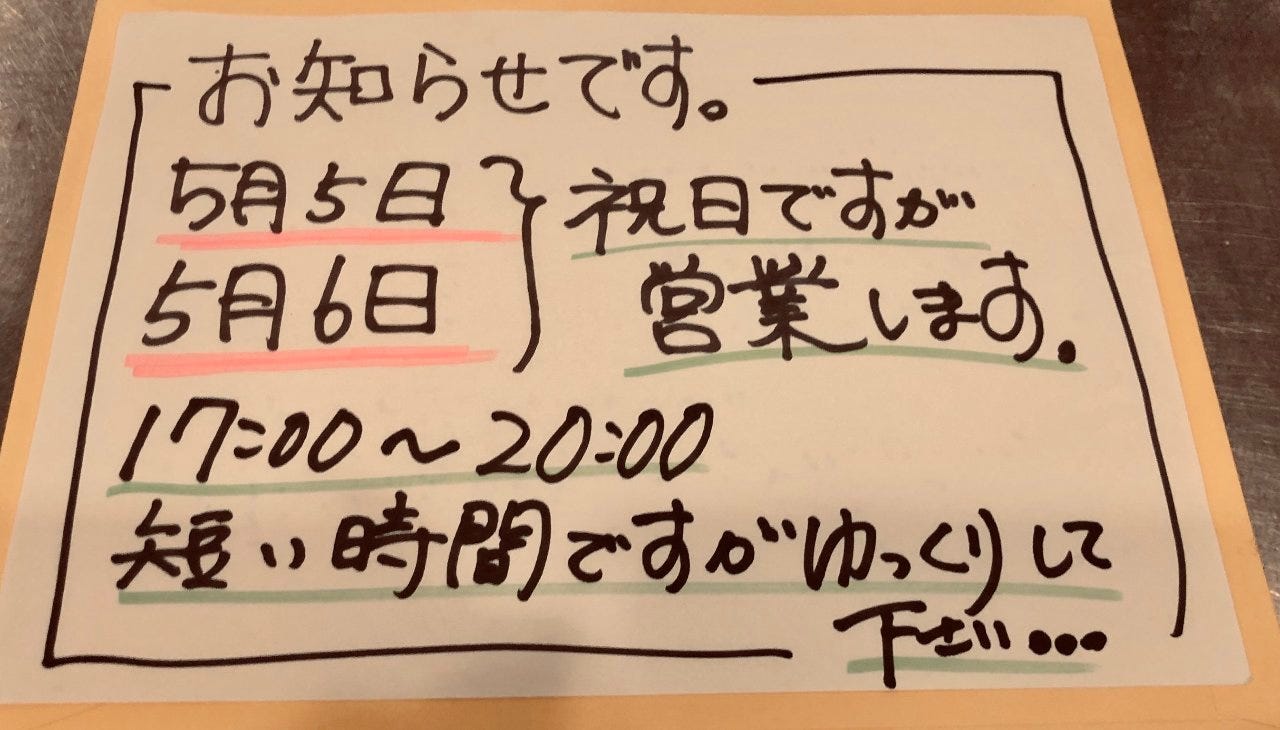 お知らせです。
5月5日
5月6日
祝日ですが
営業します.
17:00～20:00
短い時間ですがゆっくりして
下さい...